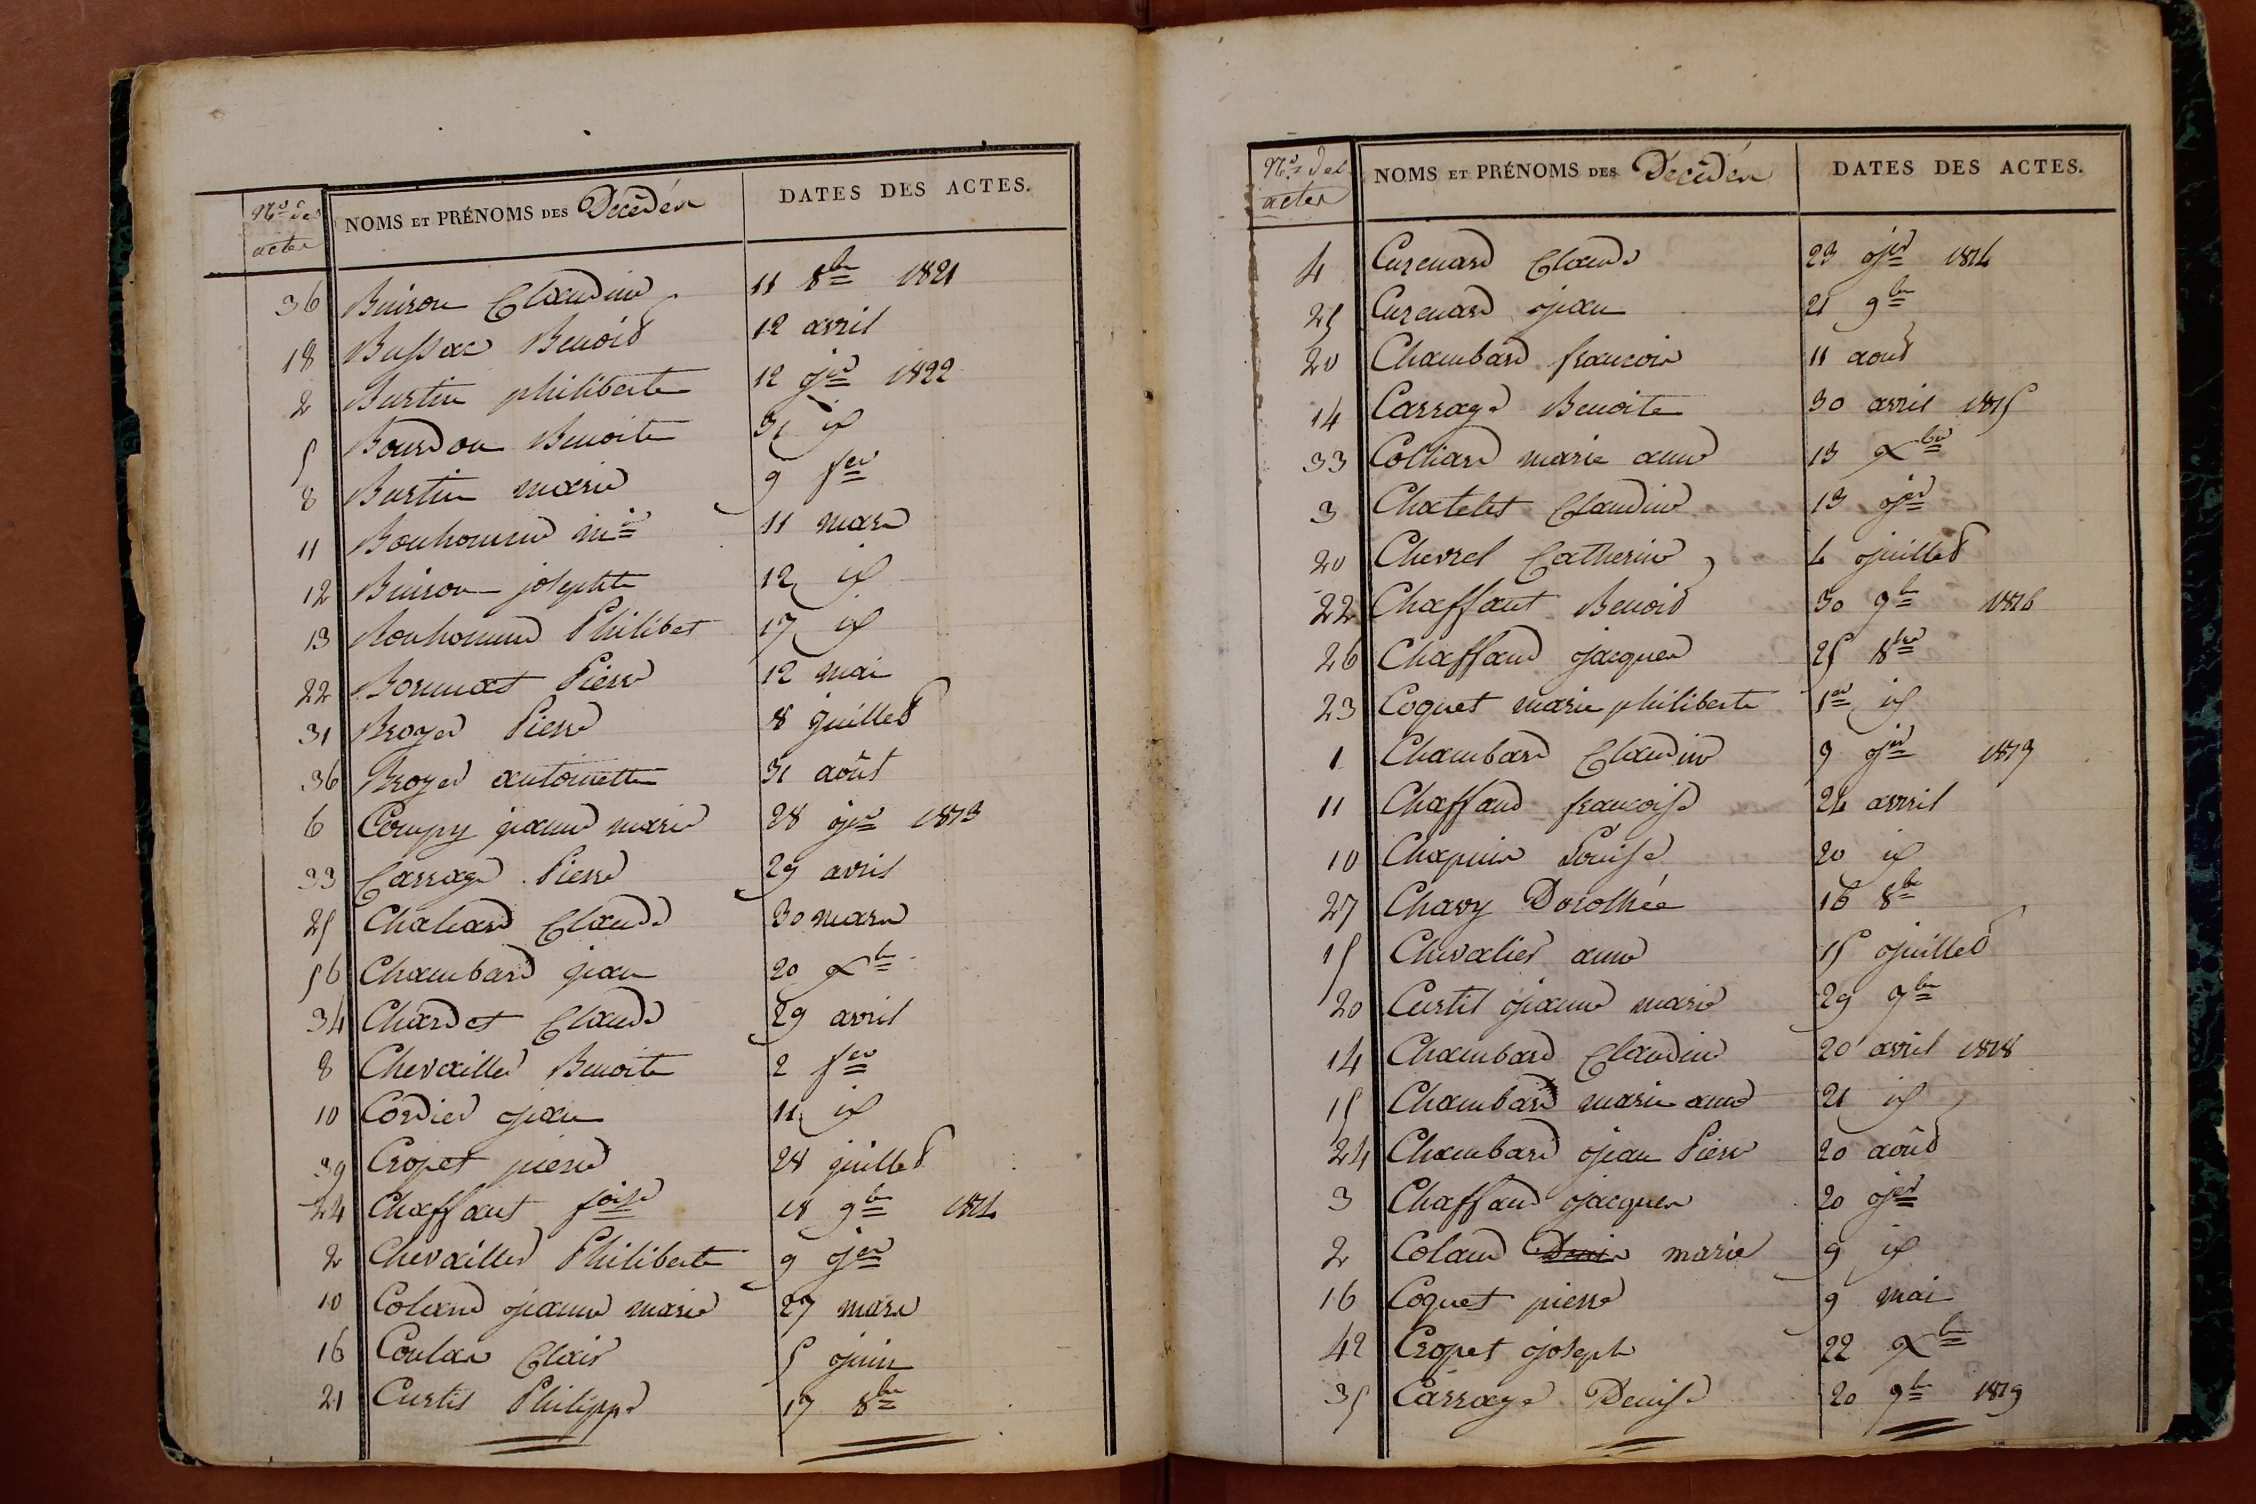 Nos des
actes
NOMS ET PRÉNOMS DES Décédés
DATES DES ACTES.
36 Buiron Claudine 11 8bre 1821
18 Bussac Benoit 12 avril
2 Burtin philiberte 12 jer 1822
5 Bourdon Benoite 31 id
8 Burtin marie 9 fer
11 Bonhomme mie 11 mars
12 Buiron josephte 12 id
13 Bonhomme Philibet 17 id
22 Bonnat Pierre 12 mai
31 Broyer Pierre 8 juillet
36 Broyer antoinette 31 août
6 Compy jeanne marie 28 jer 1813
33 Carrage Pierre 29 avril
25 Chaliard Claude 30 mars
56 Chambard jean 20 Xbre
34 Chardet Claude 29 avril
8 Chevailler Benoite 2 fer
10 Cordier jean 11 id
39 Cropet pierre 28 juillet
24 Chaffaut foise 18 9bre 1814
2 Chevailler Philiberte 9 jer
10 Coland jeanne marie 27 mars
16 Coulas Clair 5 juin
21 Curtil Philippe 17 8bre
Nos des
actes
NOMS ET PRÉNOMS DES Décédés
DATES DES ACTES.
4 Curenard Claude 23 jer 1814
25 Curenard jean 21 9bre
20 Chambard francois 11 aout
14 Carrage Benoite 30 avril 1815
33 Colliard marie anne 13 Xbre
3 Chatelet Claudine 13 jer
20 Chevrel Catherine 4 juillet
22 Chaffaut Benoit 30 9bre 1816
26 Chaffaud jacques 25 8bre
23 Coquet marie philiberte 1er id
1 Chambard Claudine 9 jer 1817
11 Chaffaud francoise 24 avril
10 Chapuis Louise 20 id
27 Chavy Dorothée 16 8bre
15 Chevalier anne 15 juillet
20 Curtil jeanne marie 29 9bre
14 Chambard Claudine 20 avril 1818
15 Chambard marie anne 21 id
24 Chambard jean Pierre 20 août
3 Chaffaud jacques 20 jer
2 Coland Denis marie 9 id
16 Coquet pierre 9 mai
42 Cropet joseph 22 Xbre
35 Carrage Denise 20 9bre 1819